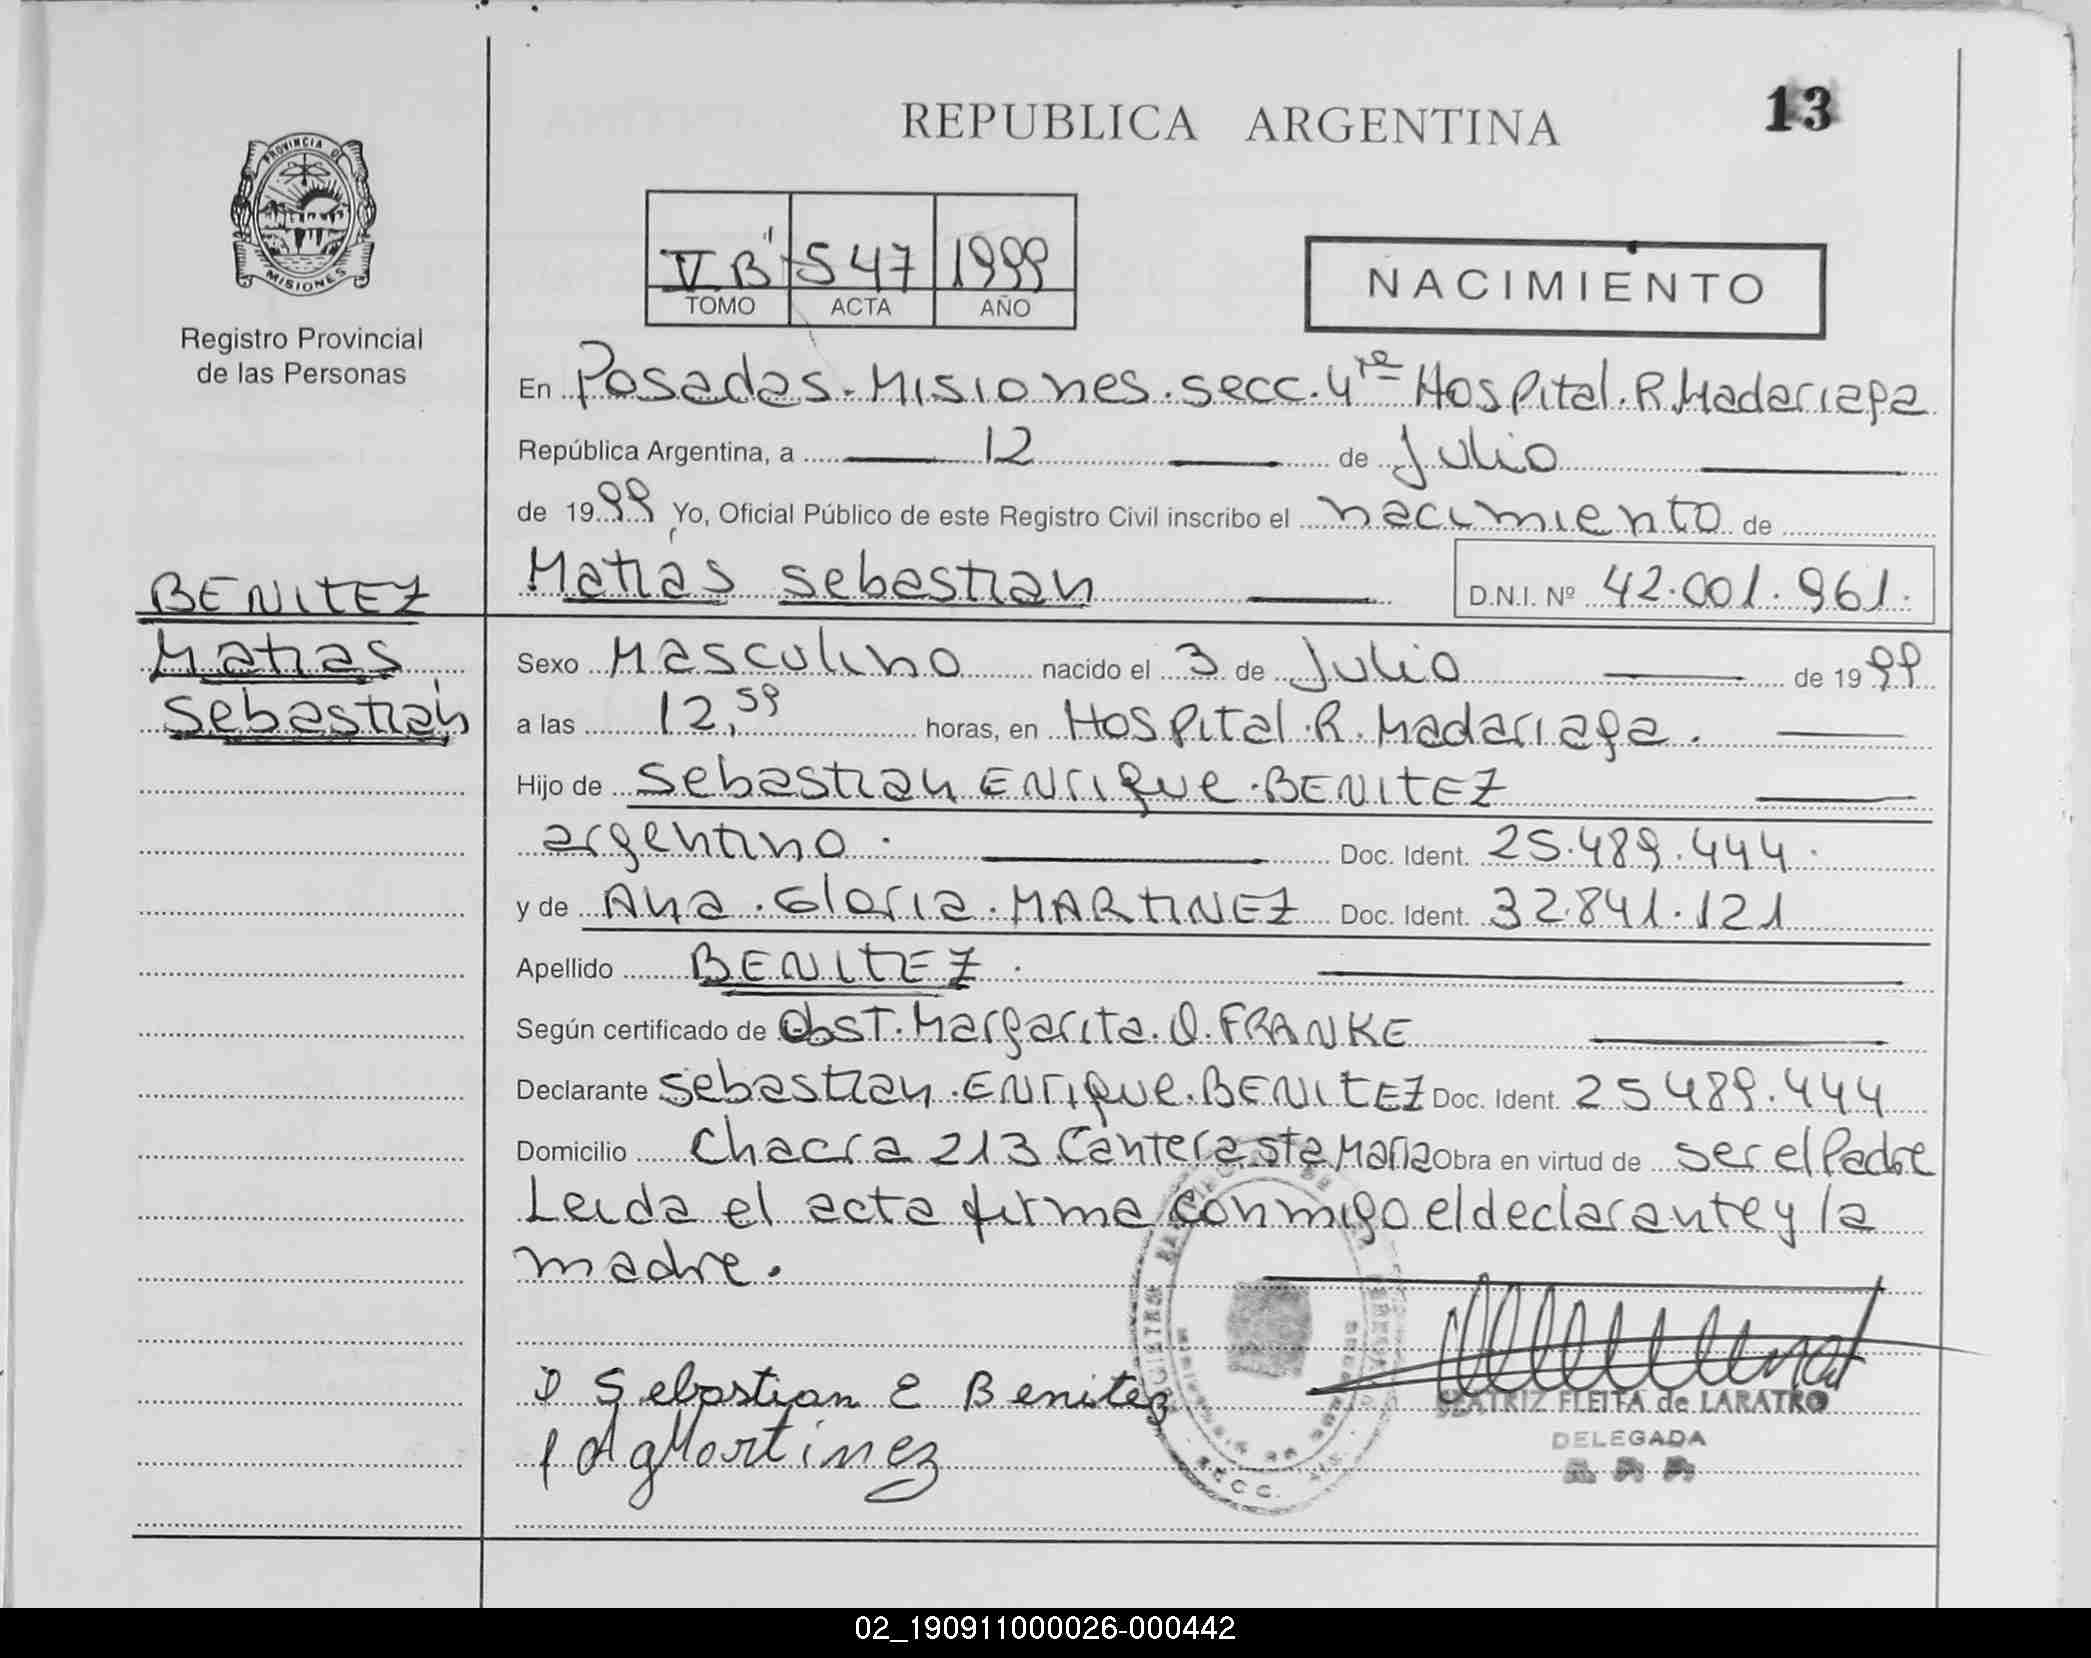 REPUBLICA ARGENTINA
13
PROVINCIA DE
MISIONES
Registro Provincial
de las Personas
V B' 547 1999
TOMO ACTA AÑO
NACIMIENTO
En Posadas. Misiones. secc. 4ta Hospital. R. Madariaga
República Argentina, a 12 de Julio
de 1999 Yo, Oficial Público de este Registro Civil inscribo el nacimiento de
Matías Sebastian D.N.I. Nº 42.001.961.
BENITEZ
Matias
Sebastián
Sexo Masculino nacido el 3 de Julio de 1999
a las 12,59 horas, en Hospital. R. Madariaga.
Hijo de Sebastian Enrique. BENITEZ
argentino. Doc. Ident. 25.489.444.
y de Ana. Gloria. MARTINEZ Doc. Ident. 32.841.121
Apellido BENITEZ.
Según certificado de Obst. Margarita. O. FRANKE
Declarante Sebastian. Enrique. BENITEZ Doc. Ident. 25489.444
Domicilio Chacra 213 Cantera Sta Maria Obra en virtud de ser el Padre
Leida el acta firma conmigo el declarante y la
madre.
Sebastian E Benitez
AgMartinez
BEATRIZ FLEITA de LARATRO
DELEGADA
SECC.
02_190911000026-000442